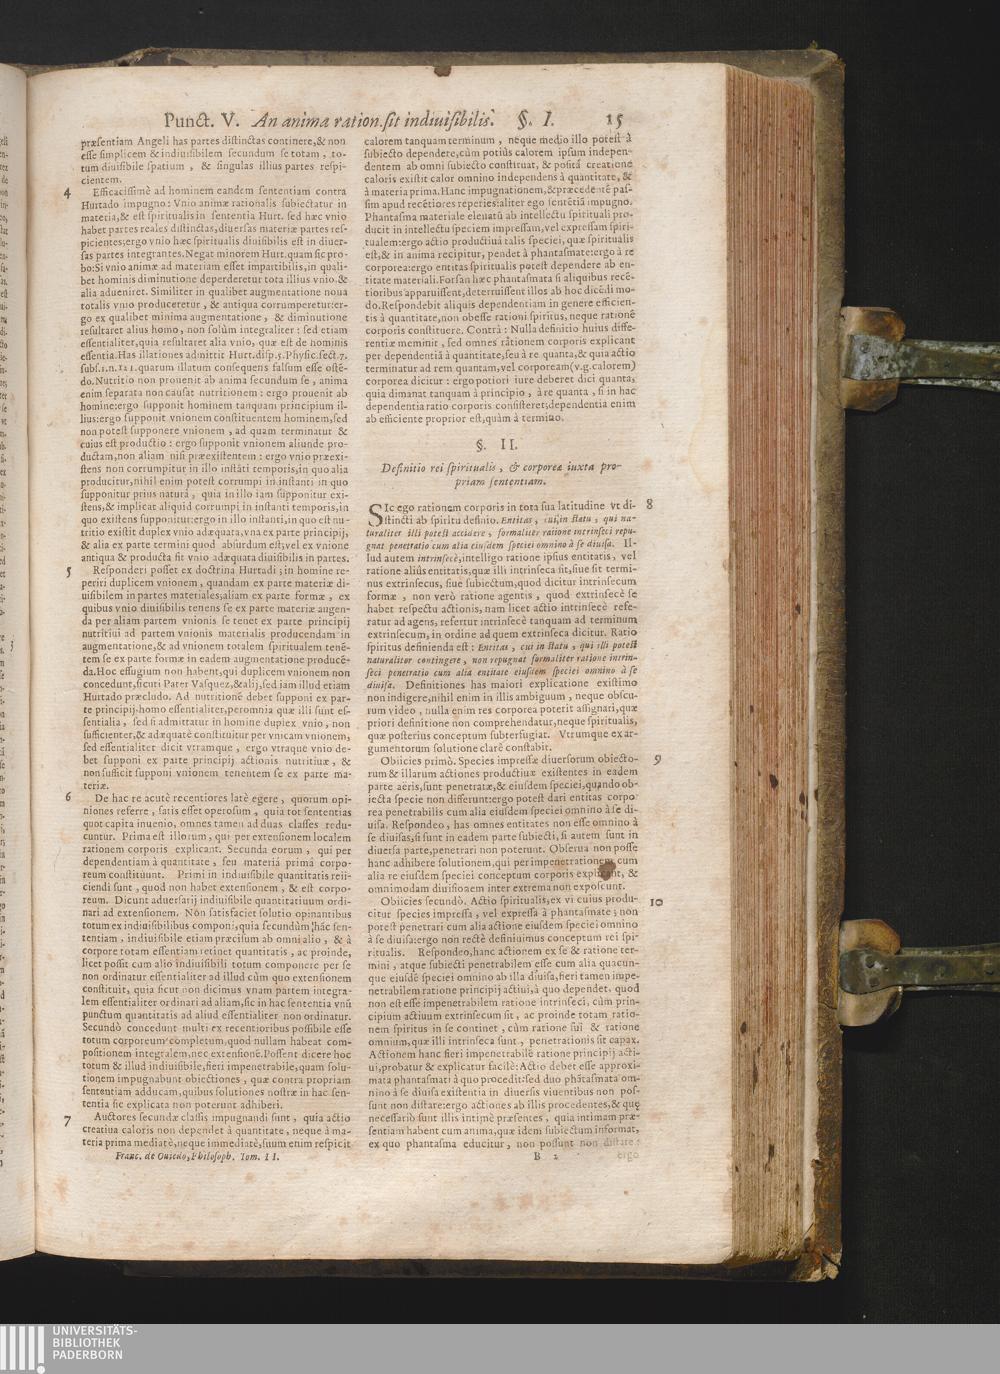 Punct. V. An anima ration. sit indiuisibilis. §. I. 15
præsentiam Angeli has partes distinctas continere, & non
esse simplicem & indiuisibilem secundum se totam, to-
tum diuisibile spatium, & singulas illius partes respi-
cientem.
4 Efficacissimè ad hominem eandem sententiam contra
Hurtado impugno: Vnio animæ rationalis subiectatur in
materia, & est spiritualis in sententia Hurt. sed hæc vnio
habet partes reales distinctas, diuersas materiæ partes res-
picientes; ergo vnio hæc spiritualis diuisibilis est in diuer-
sas partes integrantes. Negat minorem Hurt. quam sic pro-
bo: Si vnio animæ ad materiam esset impartibilis, in quali-
bet hominis diminutione deperderetur tota illius vnio, &
alia adueniret. Similiter in qualibet augmentatione noua
totalis vnio produceretur, & antiqua corrumperetur: er-
go ex qualibet minima augmentatione, & diminutione
resultaret alius homo, non solùm integraliter: sed etiam
essentialiter, quia resultaret alia vnio, quæ est de hominis
essentia. Has illationes admittit Hurt. disp. 5. Physic. sect. 7.
subs. 1. n. 121. quarum illatum consequens falsum esse ostē-
do. Nutritio non prouenit ab anima secundum se, anima
enim separata non causat nutritionem: ergo prouenit ab
homine: ergo supponit hominem tanquam principium il-
lius: ergo supponit vnionem constituentem hominem, sed
non potest supponere vnionem, ad quam terminatur &
cuius est productio: ergo supponit vnionem aliunde pro-
ductam, non aliam nisi præexistentem: ergo vnio præexi-
stens non corrumpitur in illo instāti temporis, in quo alia
producitur, nihil enim potest corrumpi in instanti in quo
supponitur prius natura, quia in illo iam supponitur exi-
stens, & implicat aliquid corrumpi in instanti temporis, in
quo existens supponitur: ergo in illo instanti, in quo est nu-
tritio existit duplex vnio adæquata, vna ex parte principij,
& alia ex parte termini quod absurdum est; vel ex vnione
antiqua & producta fit vnio adæquata diuisibilis in partes.
5 Responderi posset ex doctrina Hurtadi; in homine re-
periri duplicem vnionem, quandam ex parte materiæ di-
uisibilem in partes materiales; aliam ex parte formæ, ex
quibus vnio diuisibilis tenens se ex parte materiæ augen-
da per aliam partem vnionis se tenet ex parte principij
nutritiui ad partem vnionis materialis producendam in
augmentatione, & ad vnionem totalem spiritualem tenē-
tem se ex parte formæ in eadem augmentatione producē-
da. Hoc effugium non habent, qui duplicem vnionem non
concedunt, sicuti Pater Vasquez, & alij, sed iam illud etiam
Hurtado præcludo. Ad nutritionē debet supponi ex par-
te principij, homo essentialiter, peromnia quæ illi sunt es-
sentialia, sed si admittatur in homine duplex vnio, non
sufficienter, & adæquatè constituitur per vnicam vnionem,
sed essentialiter dicit vtramque, ergo vtraque vnio de-
bet supponi ex parte principij actionis nutritiuæ, &
non sufficit supponi vnionem tenentem se ex parte ma-
teriæ.
6 De hac re acutè recentiores latè egere, quorum opi-
niones referre, satis esset operosum, quia tot sententias
quot capita inuenio, omnes tamen ad duas classes redu-
cuntur. Prima est illorum, qui per extensionem localem
rationem corporis explicant. Secunda eorum, qui per
dependentiam à quantitate, seu materiâ primâ corpo-
reum constituunt. Primi in indiuisibile quantitatis reii-
ciendi sunt, quod non habet extensionem, & est corpo-
reum. Dicunt aduersarij indiuisibile quantitatiuum ordi-
nari ad extensionem. Nōn satisfaciet solutio opinantibus
totum ex indiuisibilibus componi, quia secundùm hāc sen-
tentiam, indiuisibile etiam præcisum ab omni alio, & à
corpore totam essentiam retinet quantitatis, ac proinde,
licet possit cum alio indiuisibili totum componere per se
non ordinatur essentialiter ad illud cùm quo extensionem
constituit, quia sicut non dicimus vnam partem integra-
lem essentialiter ordinari ad aliam, sic in hac sententia vnū
punctum quantitatis ad aliud essentialiter non ordinatur.
Secundò concedunt multi ex recentioribus possibile esse
totum corporeum completum, quod nullam habeat com-
positionem integralem, nec extensionē. Possent dicere hoc
totum & illud indiuisibile, fieri impenetrabile, quam solu-
tionem impugnabunt obiectiones, quæ contra propriam
sententiam adducam, quibus solutiones nostræ in hac sen-
tentia sic explicata non poterunt adhiberi.
7 Auctores secundæ classis impugnandi sunt, quia actio
creatiua caloris non dependet à quantitate, neque à ma-
teria prima mediatè, neque immediatè, suum enim respicit
Franc. de Ouiedo, Philosoph. Tom. II.
calorem tanquam terminum, neque medio illo potest à
subiecto dependere, cùm potiùs calorem ipsum indepen-
dentem ab omni subiecto constituat, & positâ creatione
caloris existit calor omnino independens à quantitate, &
à materia prima. Hanc impugnationem, & præcedentē pas-
sim apud recētiores reperies: aliter ego sentētiā impugno.
Phantasma materiale eleuatū ab intellectu spirituali pro-
ducit in intellectu speciem impressam, vel expressam spiri-
tualem: ergo actio productiua talis speciei, quæ spiritualis
est, & in anima recipitur, pendet à phantasmate: ergo à re
corporea: ergo entitas spiritualis potest dependere ab en-
titate materiali. Forsan hæc phantasmata si aliquibus recē-
tioribus apparuissent, deterruissent illos ab hoc dicēdi mo-
do. Respondebit aliquis dependentiam in genere efficien-
tis à quantitate, non obesse rationi spiritus, neque rationē
corporis constituere. Contrà: Nulla definitio huius diffe-
rentiæ meminit, sed omnes rationem corporis explicant
per dependentiā à quantitate, seu à re quanta, & quia actio
terminatur ad rem quantam, vel corpoream (v. g. calorem)
corporea dicitur: ergo potiori iure deberet dici quanta,
quia dimanat tanquam à principio, à re quanta, si in hac
dependentia ratio corporis consisteret; dependentia enim
ab efficiente proprior est, quàm à termino.
§. II.
Definitio rei spiritualis, & corporeæ iuxta pro-
priam sententiam.
SIc ego rationem corporis in tota sua latitudine vt di- 8
stincti ab spiritu definio. Entitas, cui, in statu, qui na-
turaliter illi potest accidere, formaliter ratione intrinseci repu-
gnat penetratio cum alia eiusdem speciei omnino à se diuisa. Il-
lud autem intrinsecè, intelligo ratione ipsius entitatis, vel
ratione aliùs entitatis, quæ illi intrinseca sit, siue sit termi-
nus extrinsecus, siue subiectum, quod dicitur intrinsecum
formæ, non verò ratione agentis, quod extrinsecè se
habet respectu actionis, nam licet actio intrinsecè refe-
ratur ad agens, refertur intrinsecè tanquam ad terminum
extrinsecum, in ordine ad quem extrinseca dicitur. Ratio
spiritus definienda est: Entitas, cui in statu, qui illi potest
naturaliter contingere, non repugnat formaliter ratione intrin-
seci penetratio cum alia entitate eiusdem speciei omnino à se
diuisa. Definitiones has maiori explicatione existimo
non indigere, nihil enim in illis ambiguum, neque obscu-
rum video, nulla enim res corporea poterit assignari, quæ
priori definitione non comprehendatur, neque spiritualis,
quæ posterius conceptum subterfugiat. Vtrumque ex ar-
gumentorum solutione clarè constabit.
Obiicies primò. Species impressæ diuersorum obiecto- 9
rum & illarum actiones productiuæ existentes in eadem
parte aëris, sunt penetratæ, & eiusdem speciei, quando ob-
iecta specie non differunt: ergo potest dari entitas corpo-
rea penetrabilis cum alia eiusdem speciei omnino à se di-
uisa. Respondeo, has omnes entitates non esse omnino à
se diuisas, si sunt in eadem parte subiecti, si autem sunt in
diuersa parte, penetrari non poterunt. Obserua non posse
hanc adhibere solutionem, qui per impenetrationem cum
alia re eiusdem speciei conceptum corporis explicant, &
omnimodam diuisionem inter extrema non exposcunt.
Obiicies secundò. Actio spiritualis, ex vi cuius produ- 10
citur species impressa, vel expressa à phantasmate; non
potest penetrari cum alia actione eiusdem speciei omnino
à se diuisa: ergo non rectè definiuimus conceptum rei spi-
ritualis. Respondeo, hanc actionem ex se & ratione ter-
mini, atque subiecti penetrabilem esse cum alia quacun-
que eiusdē speciei omnino ab illa diuisa, fieri tamen impe-
netrabilem ratione principij actiui, à quo dependet, quod
non est esse impenetrabilem ratione intrinseci, cùm prin-
cipium actiuum extrinsecum sit, ac proinde totam ratio-
nem spiritus in se continet, cùm ratione sui & ratione
omnium, quæ illi intrinseca sunt, penetrationis sit capax.
Actionem hanc fieri impenetrabilē ratione principij acti-
ui, probatur & explicatur facilè: Actio debet esse approxi-
mata phantasmati à quo procedit: sed duo phātasmata om-
nino à se diuisa existentia in diuersis viuentibus non pos-
sunt non distare: ergo actiones ab illis procedentes, & quę
necessariò sunt illis intimè præsentes, quia intimam præ-
sentiam habent cum anima, quæ idem subiectum informat,
ex quo phantasma educitur, non possunt non distare:
B 2 ergo
UNIVERSITÄTS-
BIBLIOTHEK
PADERBORN